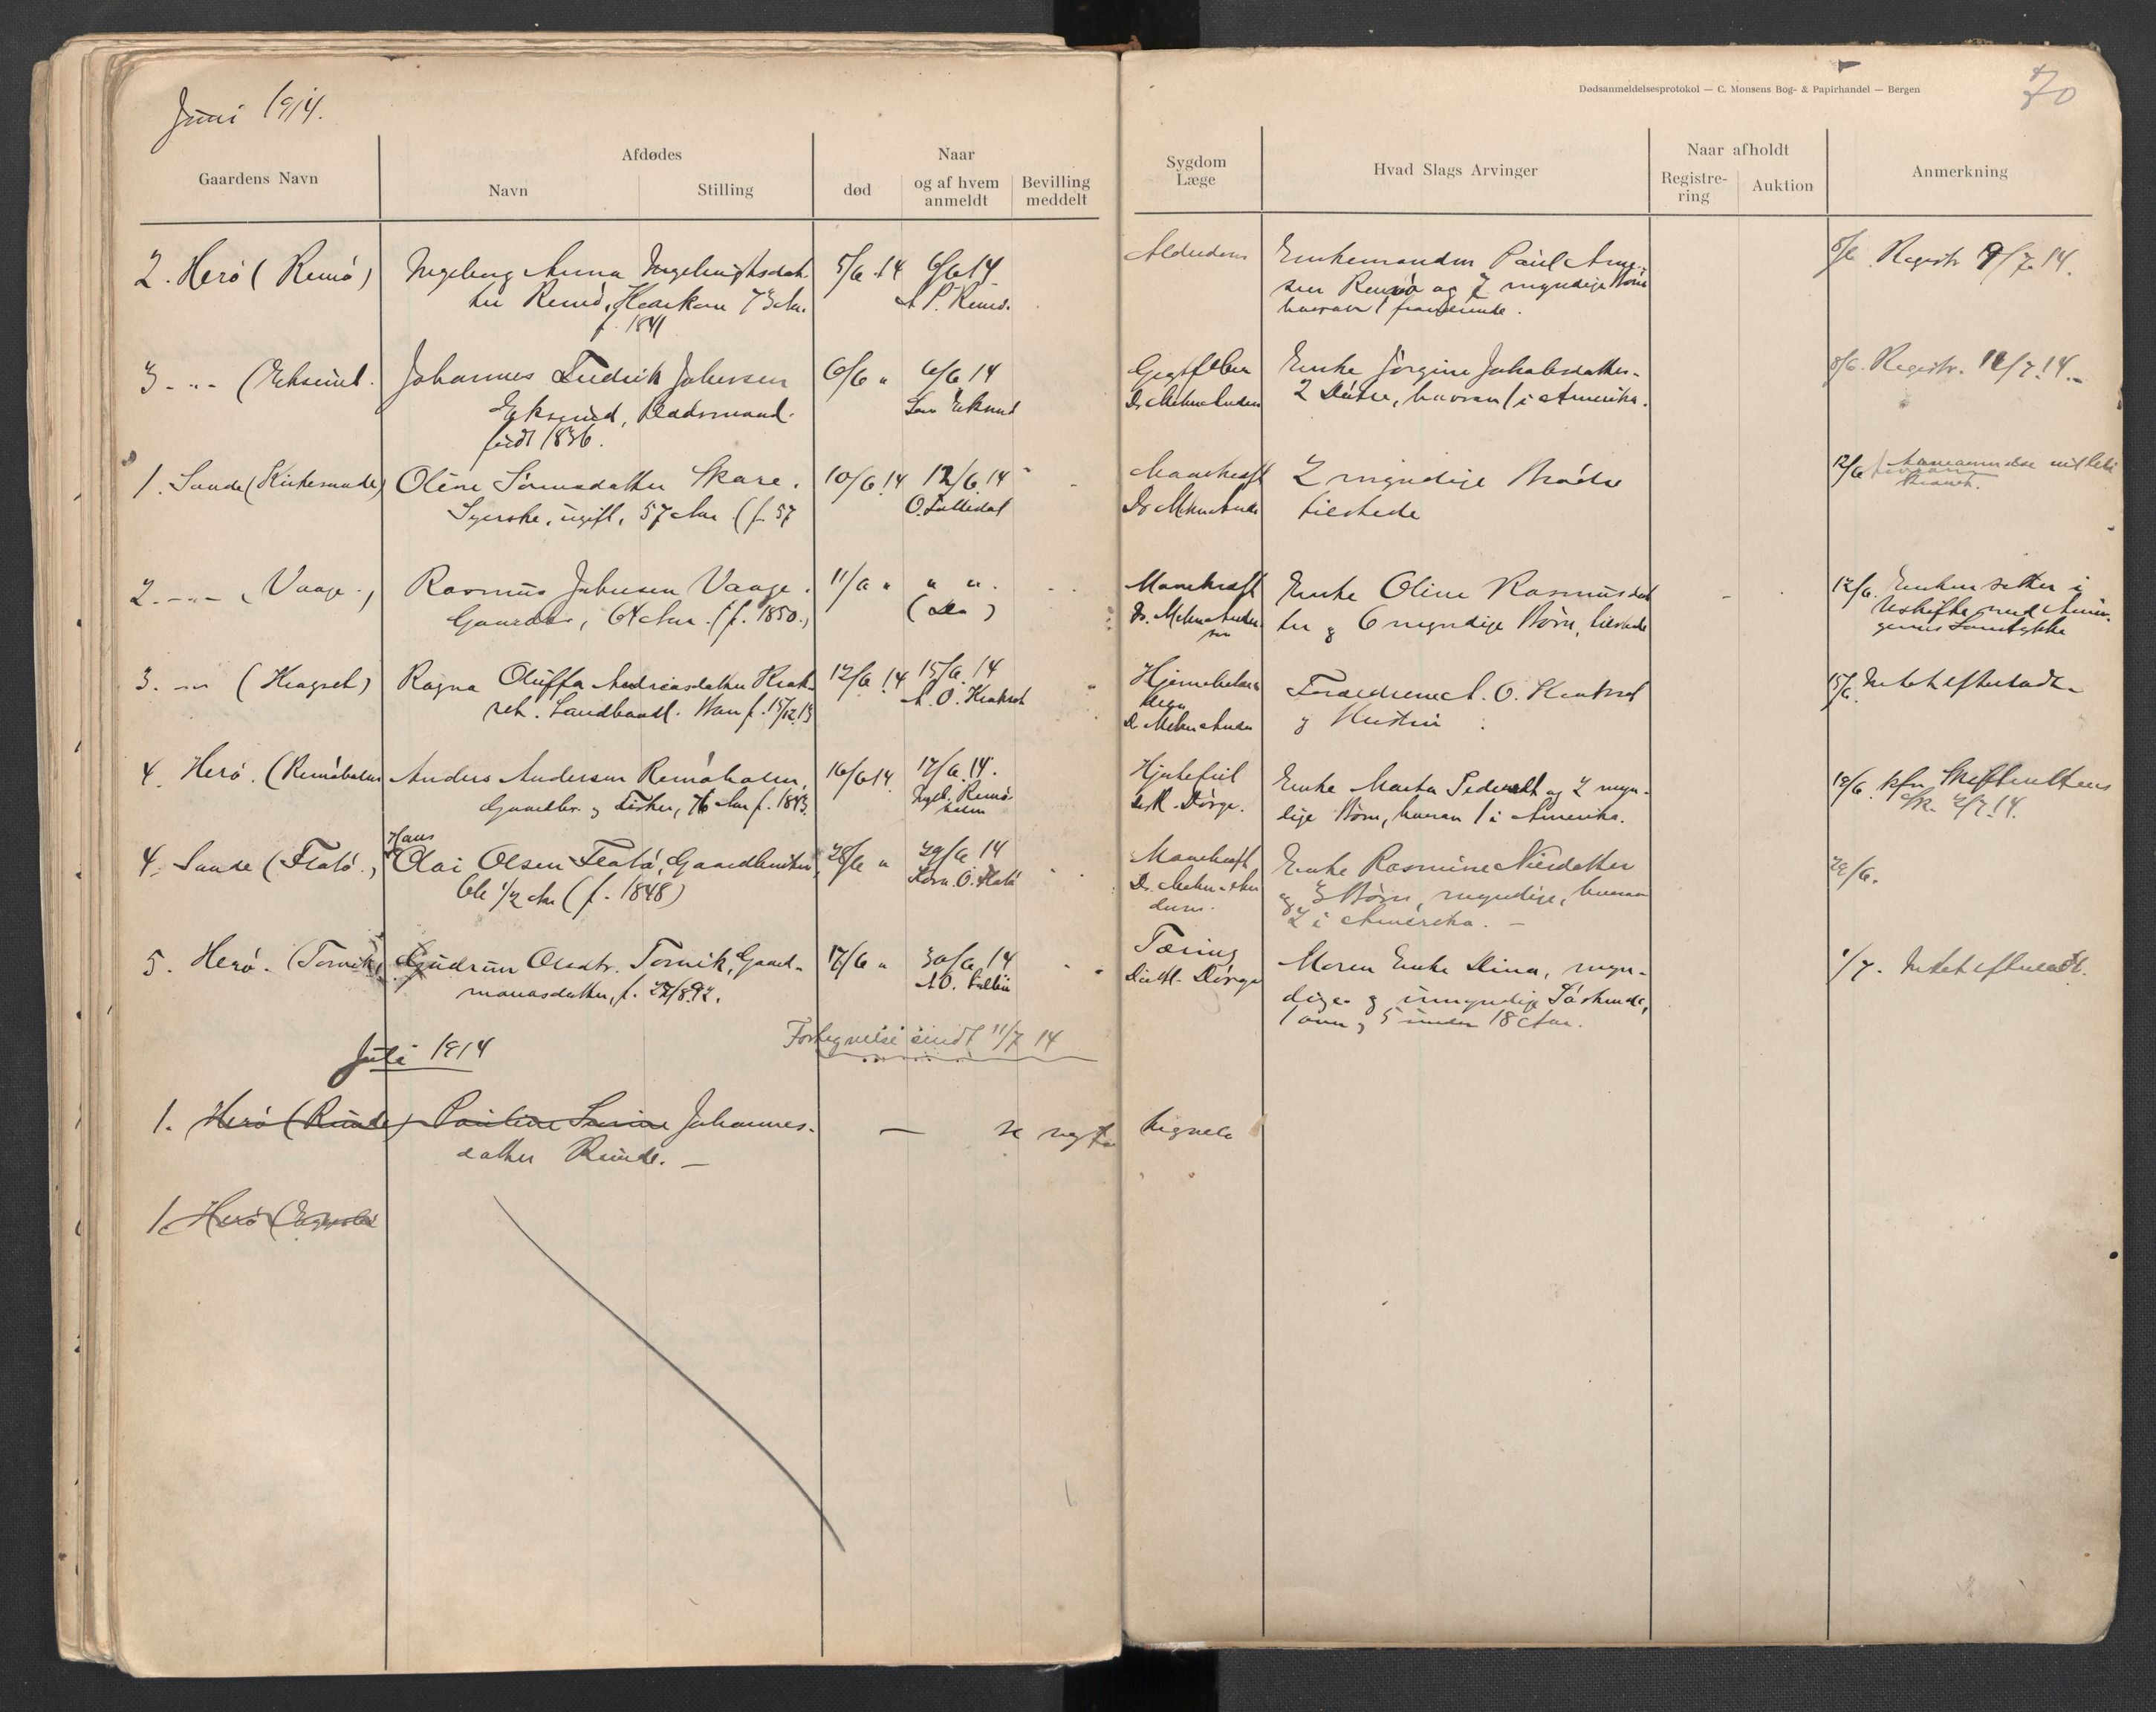 Juni 1914.
Dødsanmeldelsesprotokol — C. Monsens Bog- & Papirhandel — Bergen
70
Gaardens Navn
Afdødes
Navn
Stilling
Naar
død
og af hvem
anmeldt
Bevilling
meddelt
Sygdom
Læge
Hvad Slags Arvinger
Naar afholdt
Registre-
ring
Auktion
Anmerkning
2. Herö (Remö)
Ingeborg Anna Ingebrigtsdat-
ter Remö, Kaarkone 73 Aar.
f. 1841
5/6 14
6/6 14
A P. Remö.
Alderdom
Enkemanden Paul Arne-
sen Remö og 7 myndige Börn
hvorav 1 fraværende.
8/6 Registr 9/7 14.
3 - " - (Eksund.
Johannes Fredrik Johnsen
Eksund, Kaarmand.
född 1836.
6/6 "
6/6 14
Lars Eksund
Gigtfeber
Dr. Mehn Andersen
Enke Jörgine Jakobsdatter-
2 Dötre, hvorav 1 i Amerika.
8/6. Registr. 10/7 14.-
1. Sande (Kirkesande)
Oline Simonsdatter Skare.
Syerske, ugift, 57 Aar (f. 57
10/6 14
12/6 14
O. Tallidal
Mavekræft
Dr Mehn Ande
2 myndige Brödre
tilstede
12/6
2. - " - (Vaage.)
Rasmus Johnsen Vaage.
Gaardbr, 64 Aar. (f. 1850.)
11/6 "
" "
(do)
Mavekræft
Dr. Mehn Ander
sen
Enke Oline Rasmusdat
ter og 6 myndige Börn, tilstede
12/6. Enken sitter i
Uskifte med Arvin-
gernes Samtykke
3. - " - (Kragset)
Ragna Oluffa Andreasdatter Krak-
set. Landhandl. Barn f. 15/12 13
12/6 14
15/6. 14
A. O. Krakset
Dr. Mehn Ander
Forældrene A. O. Krakset
og Hustru
15/6. Intet efterladt.
4. Herö. (Remöholm
Anders Andersen Remöholm,
Gaardbr. og Fisker, 71 Aar f. 1843.
16/6 14
17/6. 14.
Ingebr. Remö-
holm
Hjertefeil
D. R. Dörge.
Enke Marta Pedersdt og 2 myn-
dige Börn, hvorav 1 i Amerika.
19/6.
2/7 14.
4. Sande (Flatö.)
Hans
Olai Olsen Flatö, Gaardbruker,
66 1/2 Aar (f. 1848)
28/6 "
29/6 14
Korn. O. Flatö
Mavekræft
Dr. Mehn-An
dersen.
Enke Rasmine Nilsdatter
og 3 Börn, myndige, hvorav
2 i Amerika. -
29/6.
5. Herö. (Torvik)
Gudrun Olsdtr. Torvik, Gaard-
mansdatter, f. 27/8 92.
17/6 "
30/6 14
Tæring
Distl. Dörge
Moren Enke Dina, myn-
dige og umyndige Söskende,
1 over og 5 under 18 Aar.
1/7. Intet efterladt.
Fortegnelse sendt 11/7 14
Juli 1914
1. Herö (Runde) Pauline Sarine Johannes-
datter Runde. -
—
1. Herö